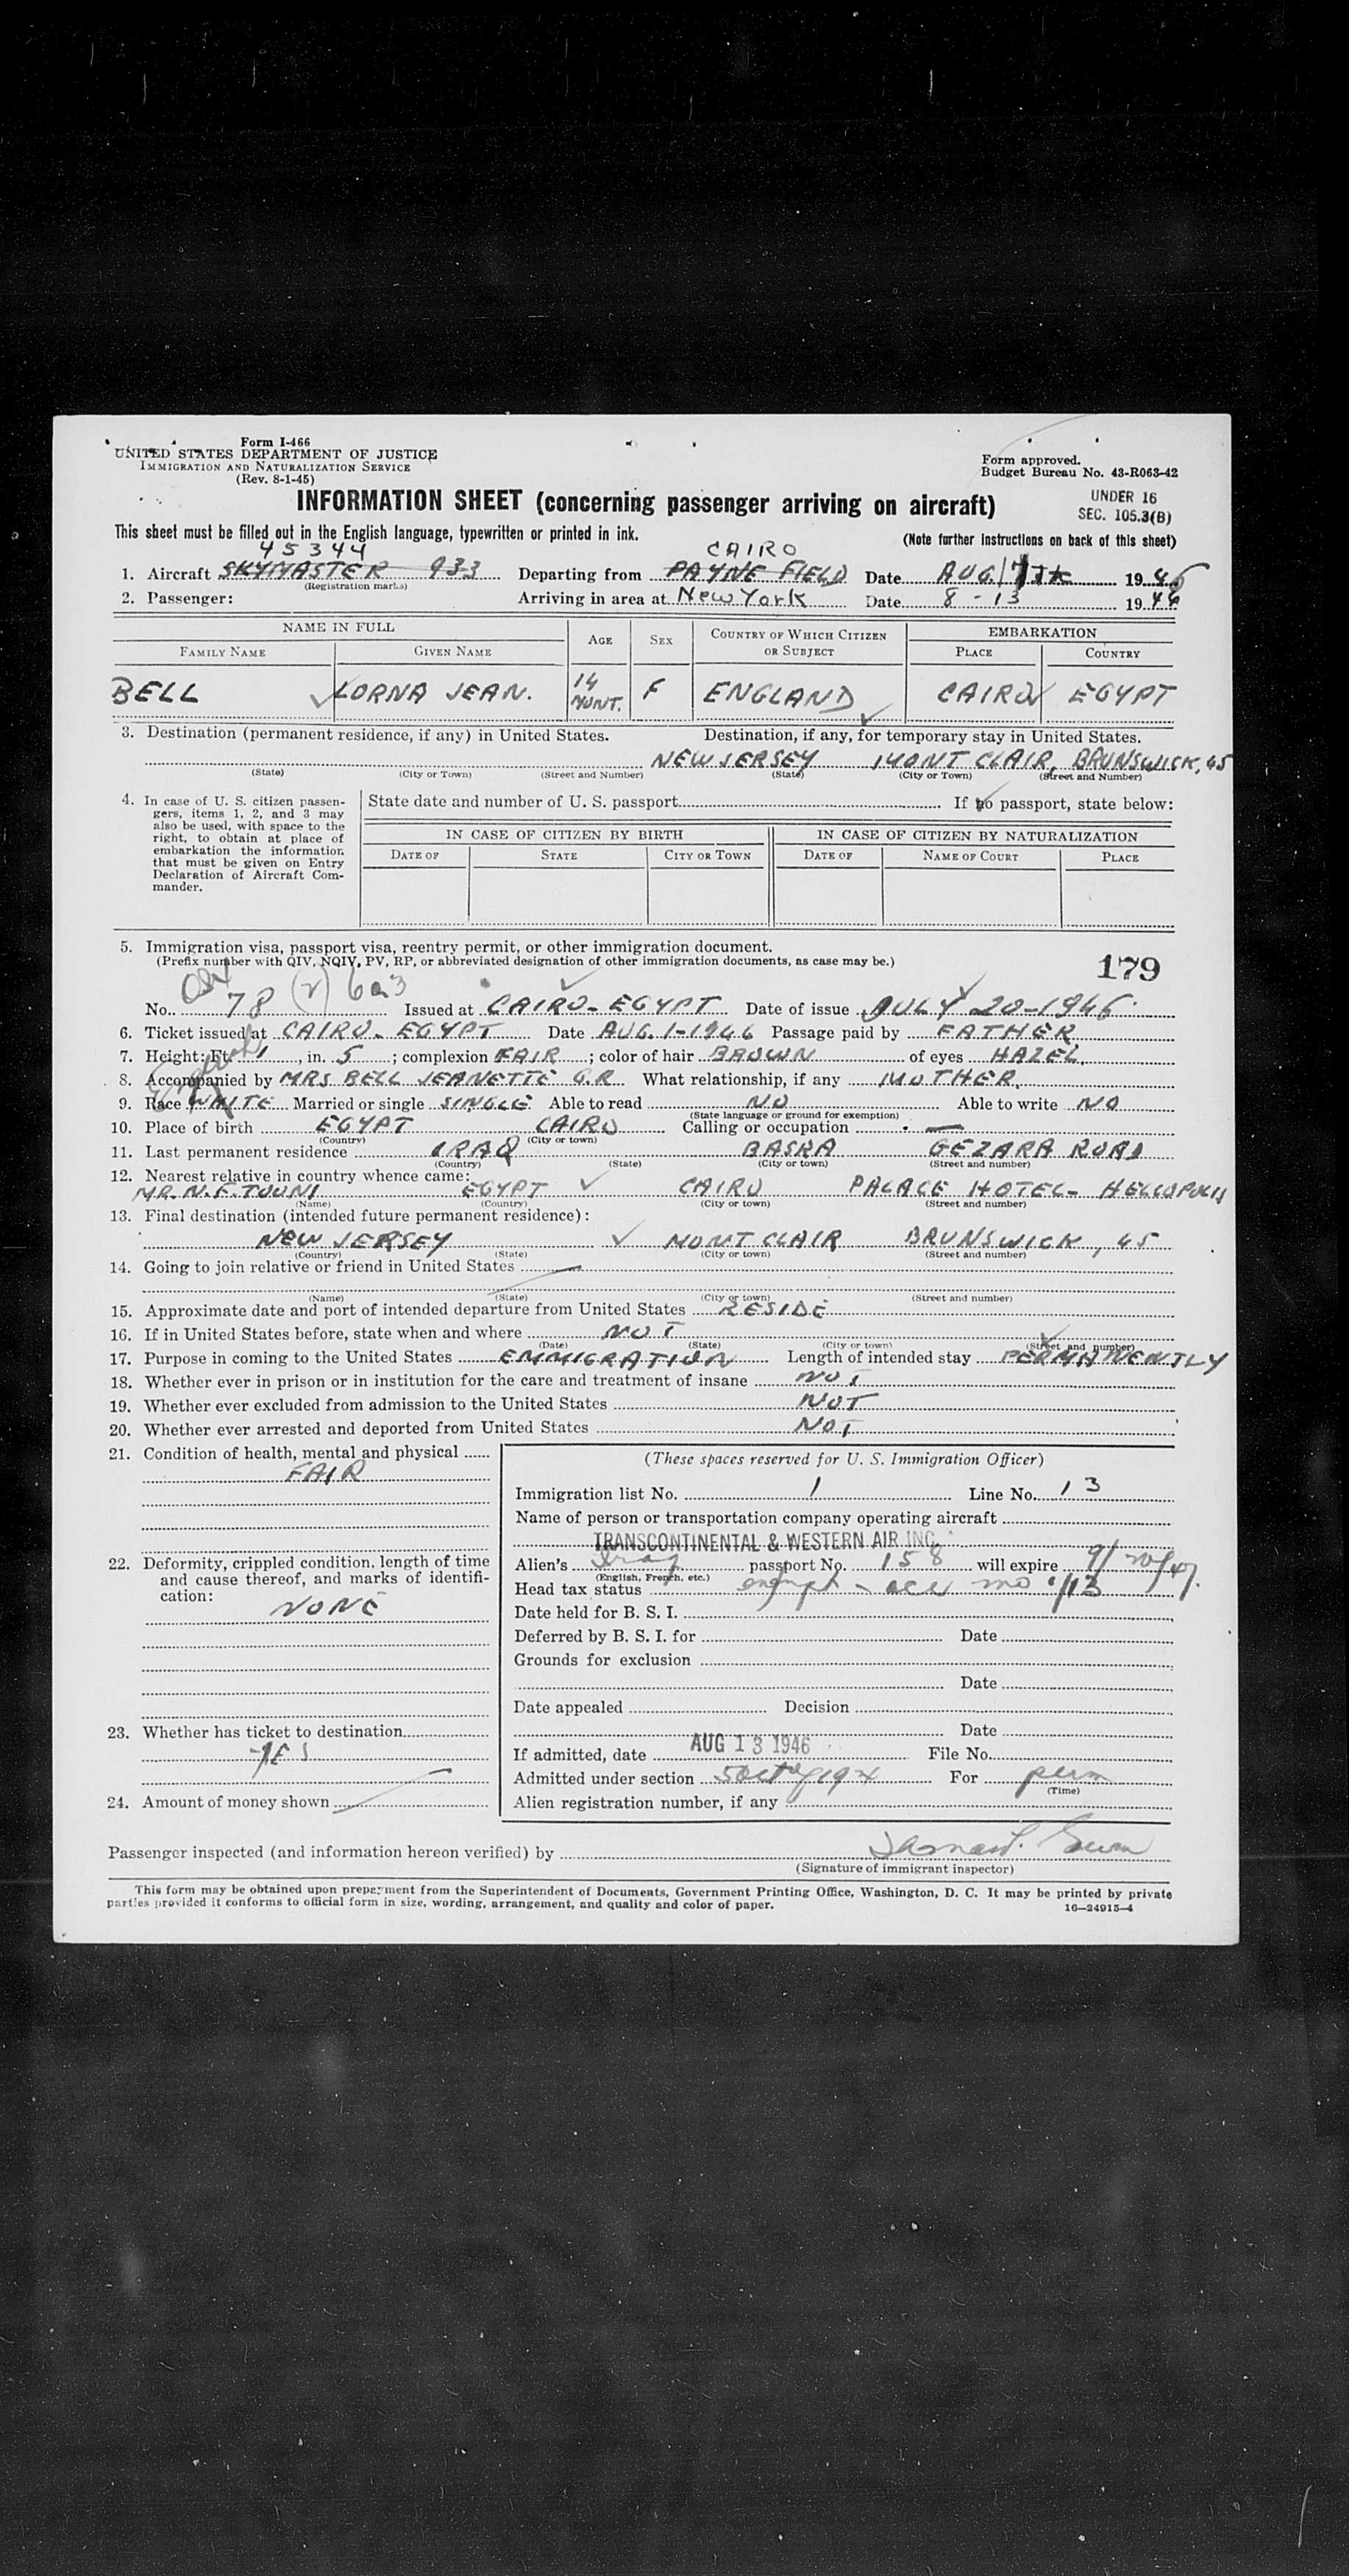 Form I-466
UNITED STATES DEPARTMENT OF JUSTICE
IMMIGRATION AND NATURALIZATION SERVICE
(Rev. 8-1-45)
Form approved.
Budget Bureau No. 43-R063-42
INFORMATION SHEET (concerning passenger arriving on aircraft)
UNDER 16
SEC. 105.3(B)
This sheet must be filled out in the English language, typewritten or printed in ink.
(Note further instructions on back of this sheet)
45344 CAIRO
1. Aircraft SKYMASTER 933 Departing from PAYNE FIELD Date AUG 1946
(Registration marks)
2. Passenger: Arriving in area at New York Date 8-13 1946
NAME IN FULL AGE SEX COUNTRY OF WHICH CITIZEN OR SUBJECT EMBARKATION
FAMILY NAME GIVEN NAME PLACE COUNTRY
BELL LORNA JEAN. 14 MONT. F ENGLAND CAIRO EGYPT
3. Destination (permanent residence, if any) in United States. Destination, if any, for temporary stay in United States.
NEW JERSEY MONT CLAIR, BRUNSWICK, 45
(State) (City or Town) (Street and Number) (State) (City or Town) (Street and Number)
4. In case of U. S. citizen passengers, items 1, 2, and 3 may also be used, with space to the right, to obtain at place of embarkation the information that must be given on Entry Declaration of Aircraft Commander.
State date and number of U. S. passport If no passport, state below:
IN CASE OF CITIZEN BY BIRTH IN CASE OF CITIZEN BY NATURALIZATION
DATE OF STATE CITY OR TOWN DATE OF NAME OF COURT PLACE
5. Immigration visa, passport visa, reentry permit, or other immigration document.
(Prefix number with QIV, NQIV, PV, RP, or abbreviated designation of other immigration documents, as case may be.)
179
No. 78 Issued at CAIRO - EGYPT Date of issue JULY 20-1946
6. Ticket issued at CAIRO - EGYPT Date AUG. 1-1946 Passage paid by FATHER
7. Height: Ft. 1, in. 5; complexion FAIR; color of hair BROWN of eyes HAZEL
8. Accompanied by MRS BELL JEANETTE G.R What relationship, if any MOTHER
9. Race WHITE Married or single SINGLE Able to read NO Able to write NO
(State language or ground for exemption)
10. Place of birth EGYPT CAIRO Calling or occupation —
(Country) (City or town)
11. Last permanent residence IRAQ BASRA GEZARA ROAD
(Country) (State) (City or town) (Street and number)
12. Nearest relative in country whence came:
MR. N. F. TOONI EGYPT CAIRO PALACE HOTEL - HELLOPOLIS
(Name) (Country) (City or town) (Street and number)
13. Final destination (intended future permanent residence):
NEW JERSEY MONT CLAIR BRUNSWICK, 45
(Country) (State) (City or town) (Street and number)
14. Going to join relative or friend in United States
(Name) (State) (City or town) (Street and number)
15. Approximate date and port of intended departure from United States RESIDE
16. If in United States before, state when and where NOT
(Date) (State) (City or town) (Street and number)
17. Purpose in coming to the United States EMMIGRATION Length of intended stay PERMANENTLY
18. Whether ever in prison or in institution for the care and treatment of insane NOT
19. Whether ever excluded from admission to the United States NOT
20. Whether ever arrested and deported from United States NOT
21. Condition of health, mental and physical
FAIR
(These spaces reserved for U. S. Immigration Officer)
Immigration list No. 1 Line No. 13
Name of person or transportation company operating aircraft
TRANSCONTINENTAL & WESTERN AIR INC.
22. Deformity, crippled condition, length of time and cause thereof, and marks of identification:
NONE
Alien's Iraq passport No. 158 will expire
(English, French, etc.)
Head tax status exempt
Date held for B. S. I.
Deferred by B. S. I. for Date
Grounds for exclusion
Date
Date appealed Decision
23. Whether has ticket to destination
YES
Date
If admitted, date AUG 13 1946 File No.
Admitted under section For perm
(Time)
24. Amount of money shown
Alien registration number, if any
Passenger inspected (and information hereon verified) by
(Signature of immigrant inspector)
This form may be obtained upon prepayment from the Superintendent of Documents, Government Printing Office, Washington, D. C. It may be printed by private
parties provided it conforms to official form in size, wording, arrangement, and quality and color of paper.
16—24915-4